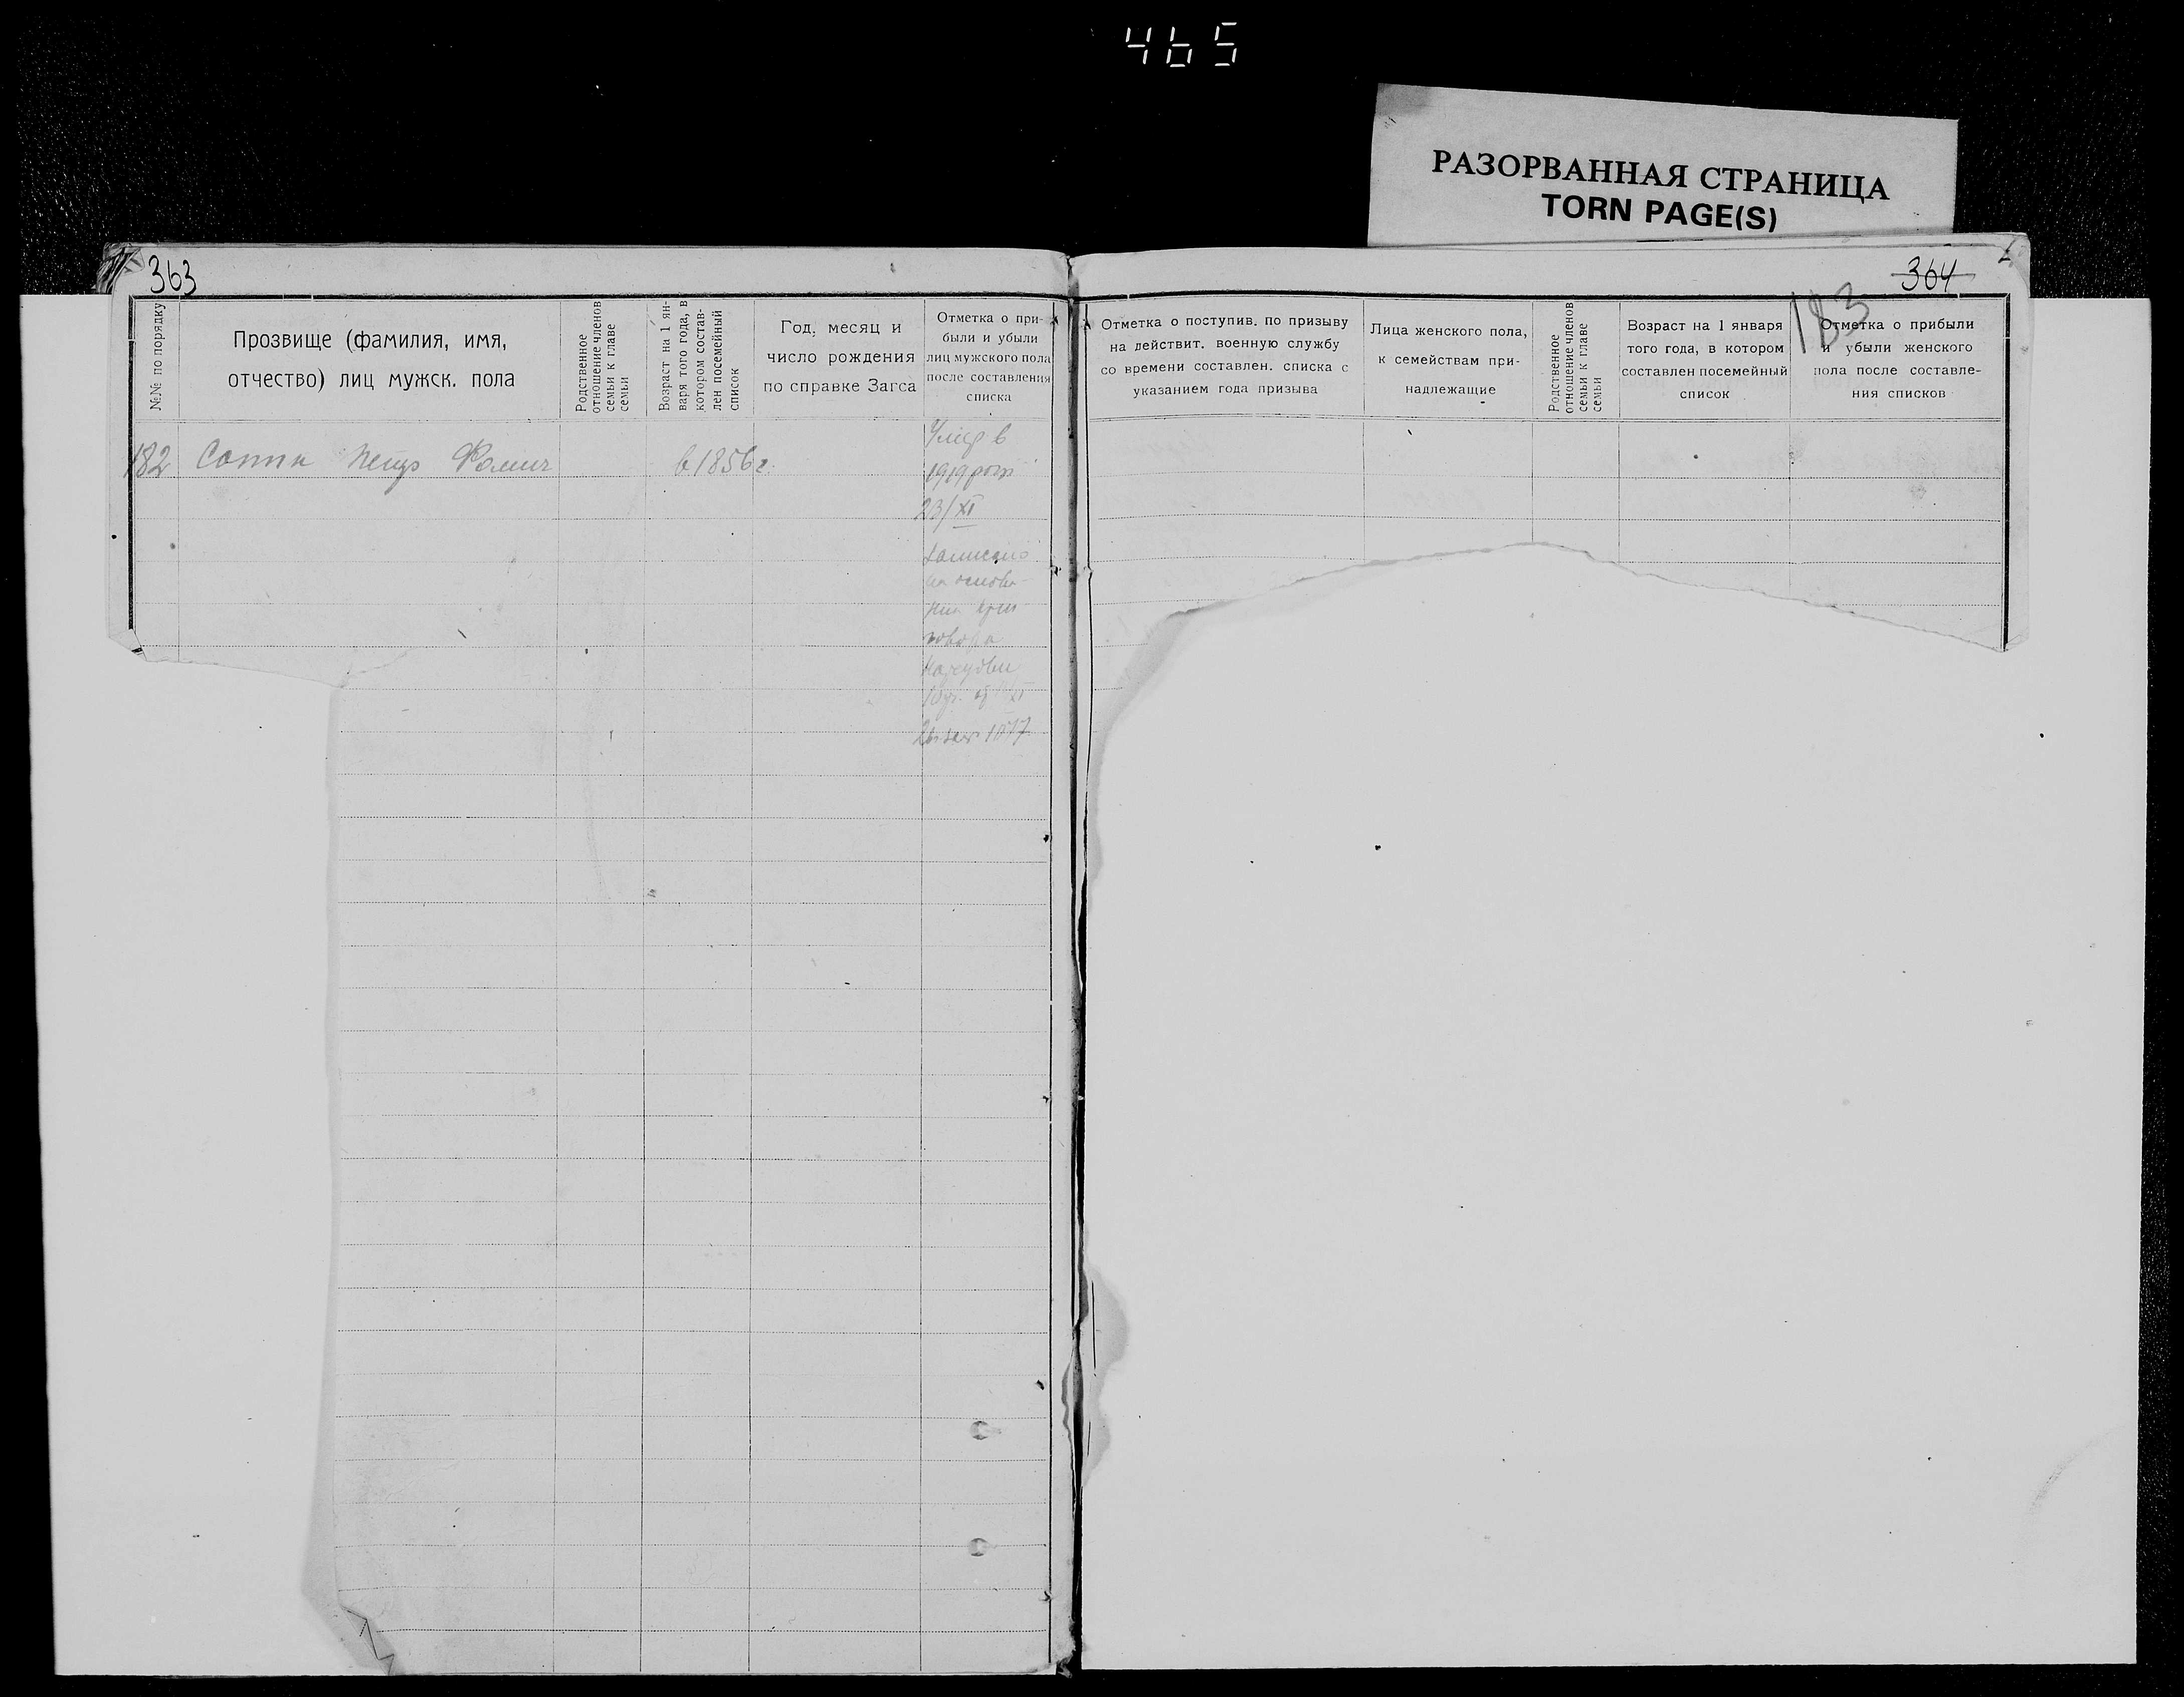 465
РАЗОРВАННАЯ СТРАНИЦА
TORN PAGE(S)
363
№№ по порядку
Прозвище (фамилия, имя,
отчество) лиц мужск. пола
Родственное
отношение членов
семьи к главе
семьи
Возраст на 1 ян-
варя того года, в
котором состав-
лен посемейный
список
Год, месяц и
число рождения
по справке Загса
Отметка о при-
были и убыли
лиц мужского пола
после составления
списка
182
Петр Фомич
в 1856 г.
в
1919
23/XI
364
183
Отметка о поступив. по призыву
на действит. военную службу
со времени составлен. списка с
указанием года призыва
Лица женского пола,
к семействам при-
надлежащие
Родственное
отношение членов
семьи к главе
семьи
Возраст на 1 января
того года, в котором
составлен посемейный
список
Отметка о прибыли
и убыли женского
пола после составле-
ния списков